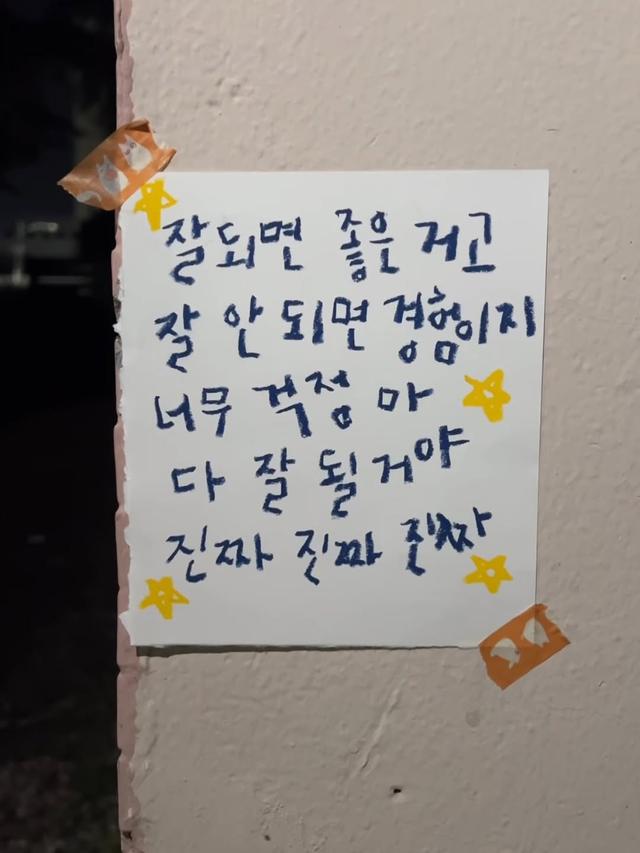 잘되면 좋은 거고
잘 안 되면 경험이지
너무 걱정 마
다 잘 될거야
진짜 진짜 진짜